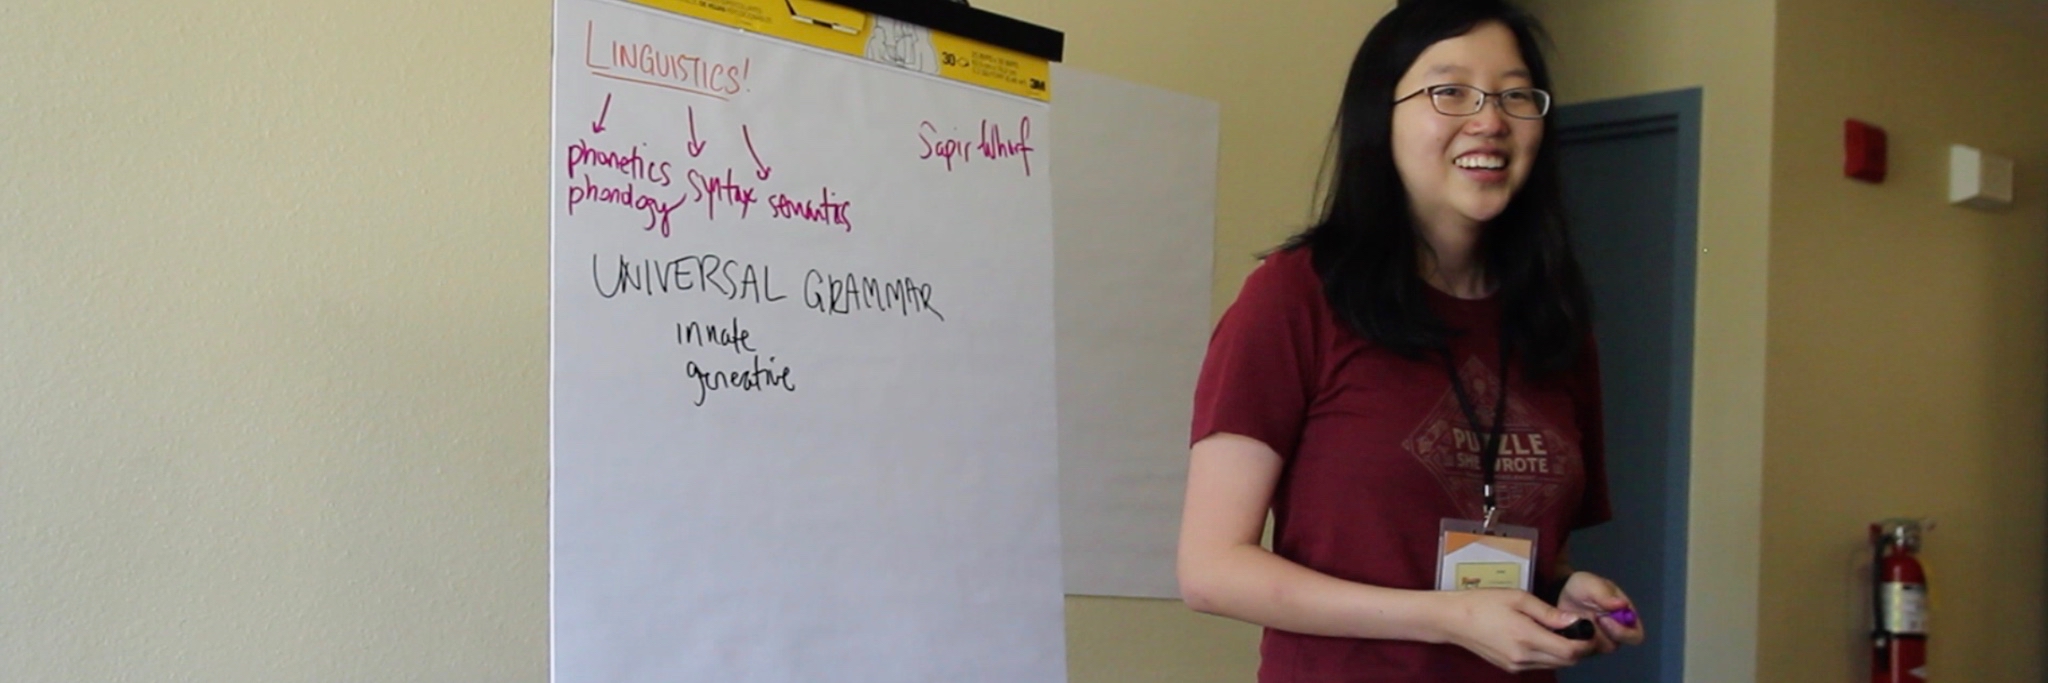 LINGUISTICS!
phonetics
phonology
syntax
semantics
Sapir Whorf
UNIVERSAL GRAMMAR
innate
generative
30
3M
PUZZLE
SHE WROTE